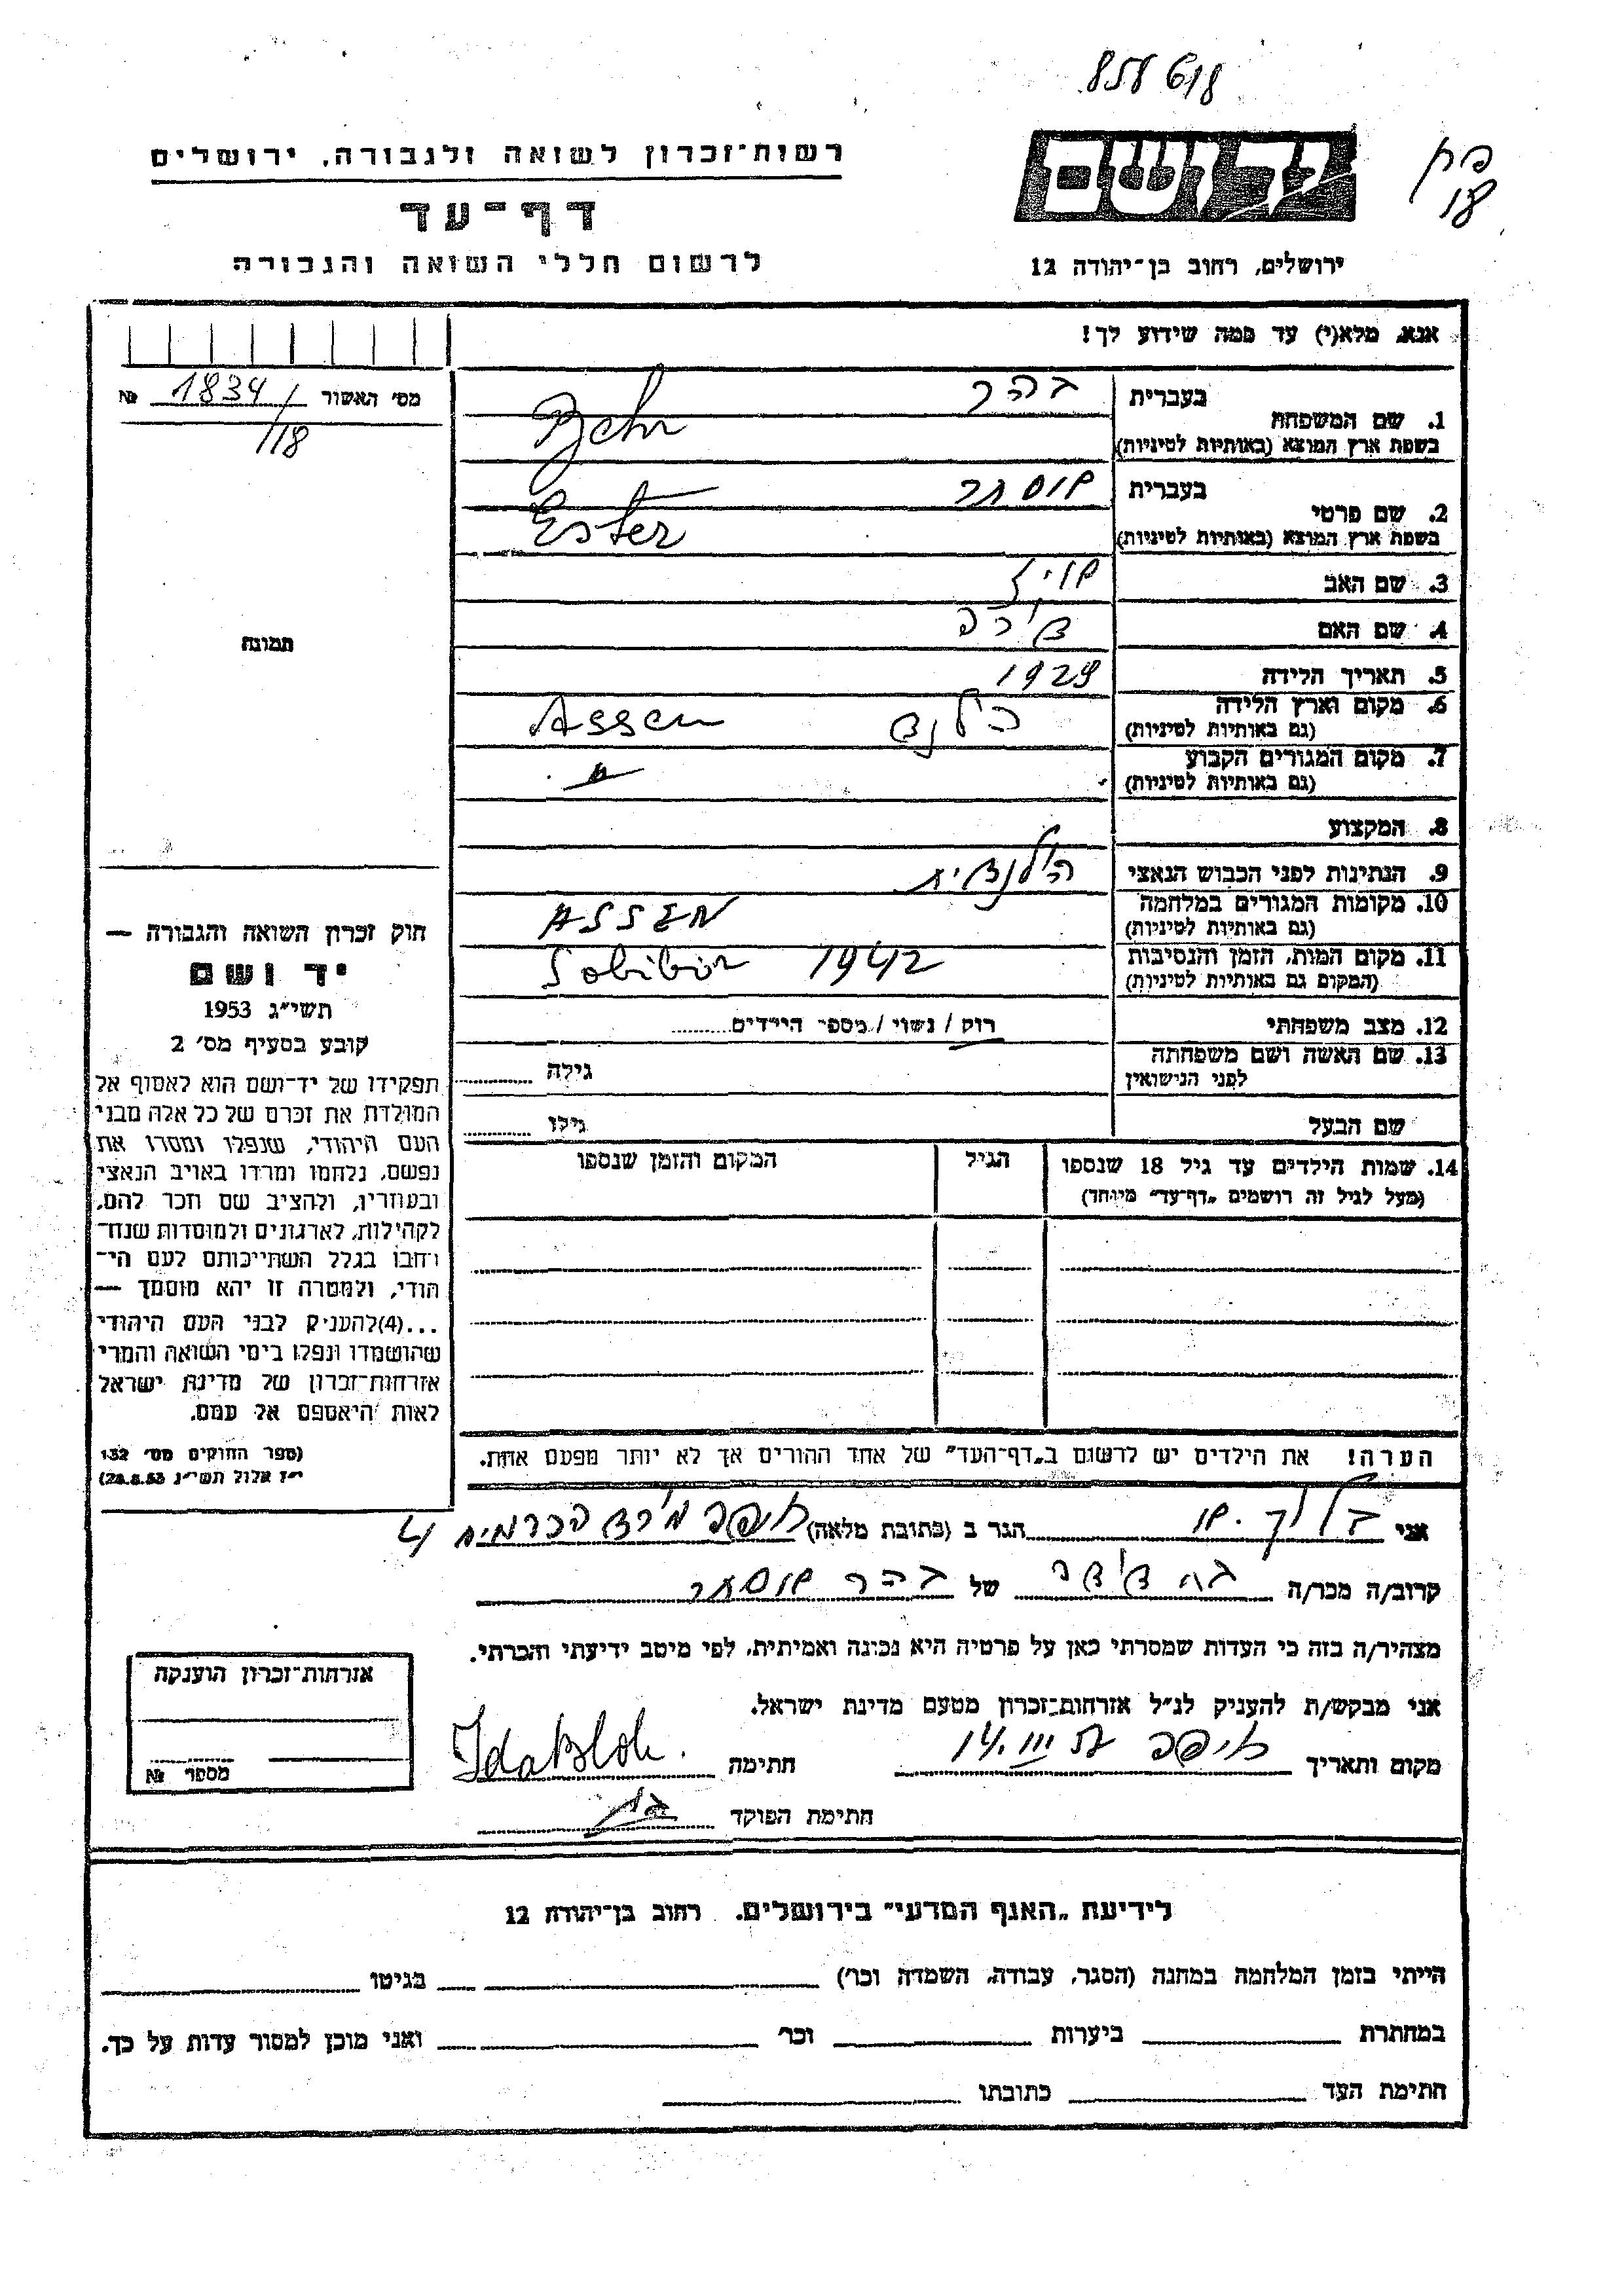 858 618
רשות־זכרון לשואה ולגבורה, ירושלים
יד ושם
דף־עד
לרשום חללי השואה והגבורה
ירושלים, רחוב בן־יהודה 12
אנא, מלא(י) עד כמה שידוע לך!
מס' האשור 1834/ №
/18
בעברית בהר
1. שם המשפחה
בשפת ארץ המוצא (באותיות לטיניות) Behr
בעברית אוסתר
2. שם פרטי
בשפת ארץ המוצא (באותיות לטיניות) Ester
3. שם האב
4. שם האם
תמונה
5. תאריך הלידה 1929
6. מקום וארץ הלידה הולנד Assen
(גם באותיות לטיניות)
7. מקום המגורים הקבוע
(גם באותיות לטיניות)
8. המקצוע
9. הנתינות לפני הכבוש הנאצי הולנדית
10. מקומות המגורים במלחמה ASSEN
(גם באותיות לטיניות)
11. מקום המות, הזמן והנסיבות Sobibor 1942
(המקום גם באותיות לטיניות)
12. מצב משפחתי רוק / נשוי / מספר הילדים
13. שם האשה ושם משפחתה גילה
לפני הנישואין
שם הבעל גילו
14. שמות הילדים עד גיל 18 שנספו הגיל המקום והזמן שנספו
(מעל לגיל זה רושמים „דף־עד" מיוחד)
חוק זכרון השואה והגבורה —
יד ושם
תשי"ג 1953
קובע בסעיף מס' 2
תפקידו של יד־ושם הוא לאסוף אל
המולדת את זכרם של כל אלה מבני
העם היהודי, שנפלו ומסרו את
נפשם, נלחמו ומרדו באויב הנאצי
ובעוזריו, ולהציב שם וזכר להם,
לקהילות, לארגונים ולמוסדות שנח־
רבו בגלל השתייכותם לעם הי־
הודי, ולמטרה זו יהא מוסמך —
...(4)להעניק לבני העם היהודי
שהושמדו ונפלו בימי השואה והמרי
אזרחות־זכרון של מדינת ישראל
לאות היאספם אל עמם.
(ספר החוקים מס' 132
י"ז אלול תשי"ג 28.8.53)
הערה! את הילדים יש לרשום ב„דף־העד" של אחד ההורים אך לא יותר מפעם אחת.
אני בלוך הגר ב (כתובת מלאה) חיפה הכרמים 4
קרוב/ה מכר/ה בת דודה של בהר אוסתר
מצהיר/ה בזה כי העדות שמסרתי כאן על פרטיה היא נכונה ואמיתית, לפי מיטב ידיעתי והכרתי.
אני מבקש/ת להעניק לנ"ל אזרחות־זכרון מטעם מדינת ישראל.
מקום ותאריך חיפה 14.III חתימה Ida Bloch.
חתימת הפוקד
אזרחות־זכרון הוענקה
מספר №
לידיעת „האגף המדעי" בירושלים. רחוב בן־יהודה 12
הייתי בזמן המלחמה במחנה (הסגר, עבודה, השמדה וכו') בגיטו
במחתרת ביערות וכו' ואני מוכן למסור עדות על כך.
חתימת העד כתובתו